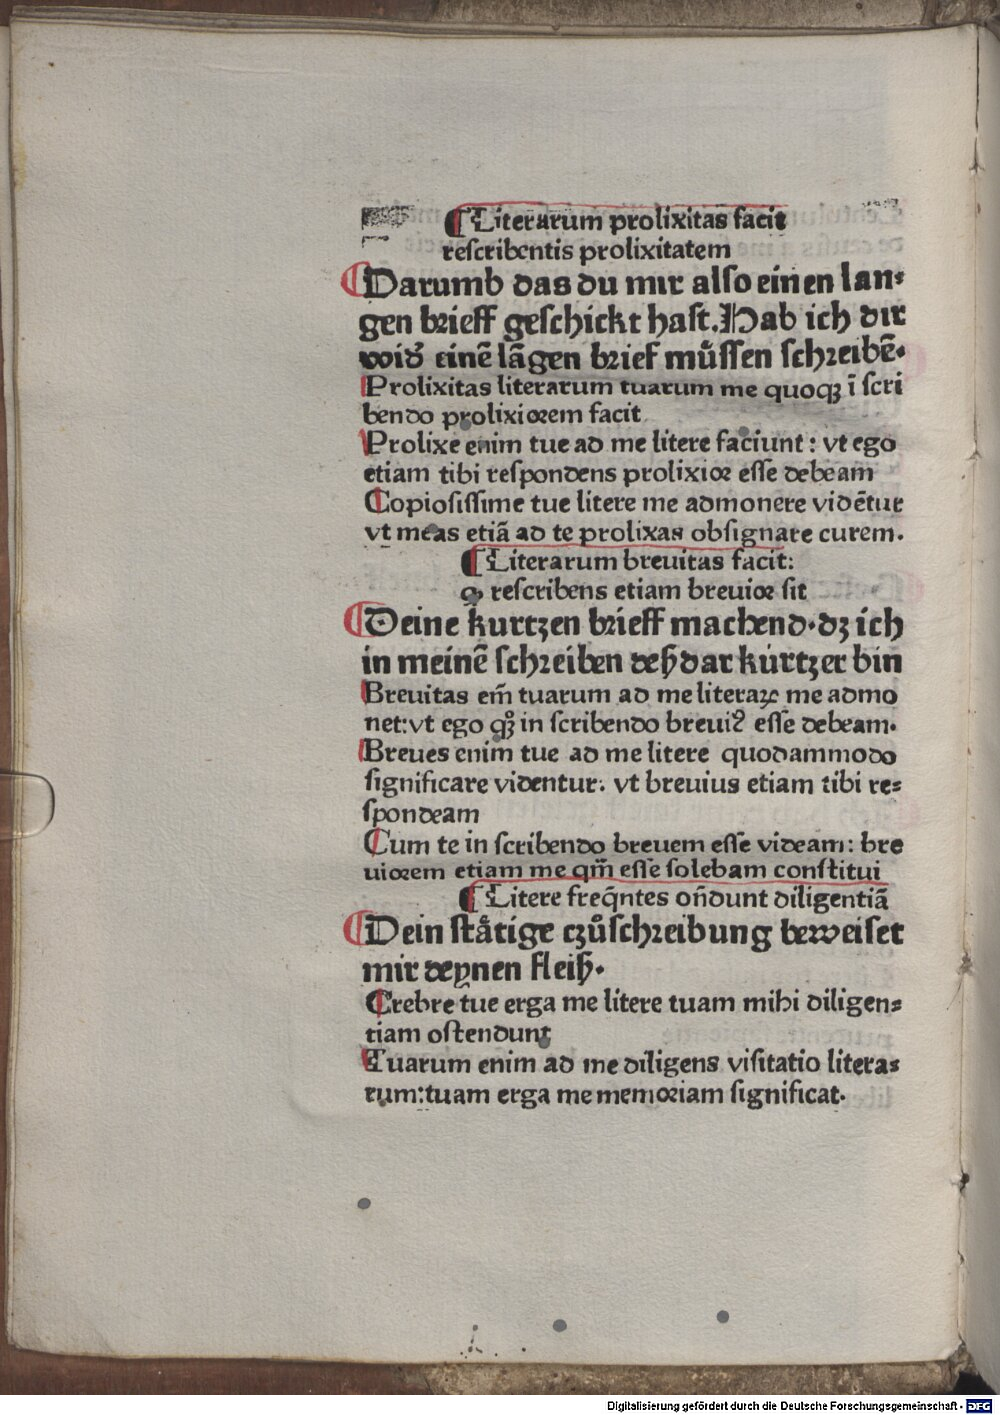 ¶ Literarum prolixitas facit
rescribentis prolixitatem
Darumb das du mir also einen lan⸗
gen brieff geschickt hast. Hab ich dir
wid̛ einē lāgen brief můssen schreibē.
Prolixitas literarum tuarum me quoqꝫ ī scri
bendo prolixiorem facit
Prolixe enim tue ad me litere faciunt: vt ego
etiam tibi respondens prolixior esse debeam
Copiosissime tue litere me admonere vidētur
vt meas etiā ad te prolixas obsignare curem.
¶ Literarum breuitas facit:
ꝙ rescribens etiam breuior sit
Deine kurtzen brieff machend. dz ich
in meinē schreiben deßdar kürtzer bin
Breuitas em̄ tuarum ad me literaꝝ me admo
net: vt ego qꝫ in scribendo breuiꝰ esse debeam.
Breues enim tue ad me litere quodammodo
significare videntur: vt breuius etiam tibi re⸗
spondeam
Cum te in scribendo breuem esse videam: bre
uiorem etiam me qm̄ esse solebam constitui
¶ Litere freqn̄tes on̄dunt diligentiā
Dein ståtige czůschreibung beweiset
mir deynen fleiß.
Crebre tue erga me litere tuam mihi diligen⸗
tiam ostendunt
Tuarum enim ad me diligens visitatio litera⸗
rum: tuam erga me memoriam significat.
Digitalisierung gefördert durch die Deutsche Forschungsgemeinschaft - DFG